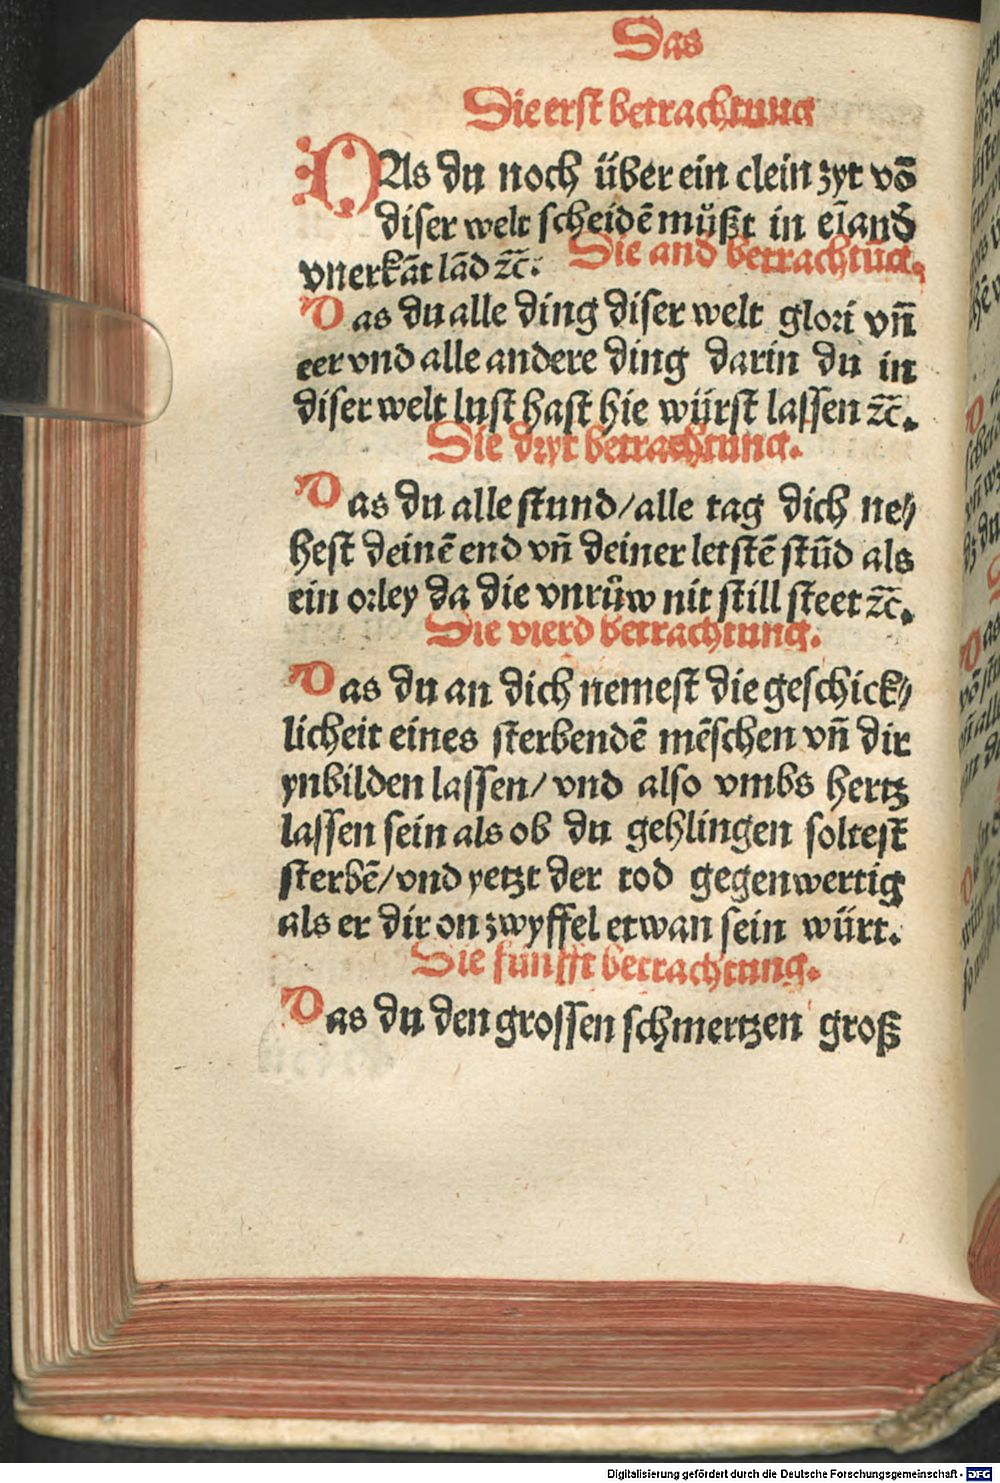 Das
Die erst betrachtung
DAs du noch über ein clein zyt võ
diser welt scheidẽ můßt in eĩ and̃
vnerkãt lãd ꝛc̃.
Die and̃ betrachtũg.
Das du alle ding diser welt glori vñ
eer vnd alle andere ding darin du in
diser welt lust hast hie würst lassen ꝛc̃.
Die dryt betrachtung.
Das du alle stund/alle tag dich ne⸗
hest deinẽ end vñ deiner letstẽ stũd als
ein orley da die vnrůw nit still steet ꝛc̃.
Die vierd betrachtung.
Das du an dich nemest die geschick⸗
licheit eines sterbendẽ mẽschen vñ dir
ynbilden lassen/ vnd also vmbs hertz
lassen sein als ob du gehlingen soltest
sterbẽ/vnd yetzt der tod gegenwertig
als er dir on zwyffel etwan sein würt.
Die fünfft betrachtung.
Das du den grossen schmertzen groß
Digitalisierung gefördert durch die Deutsche Forschungsgemeinschaft - DFG